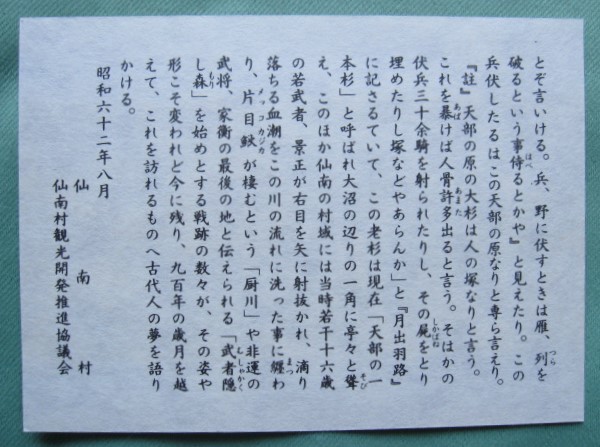 とぞ言いける。兵、野に伏すときは雁、列を
破るという事侍るとかや』と見えたり。この
兵伏したるはこの天部の原なりと専ら言えり。
『註』天部の原の大杉は人の塚なりと言う。
これを暴けば人骨許多出ると言う。そはかの
伏兵三十余騎を射られたりし、その屍をとり
埋めたりし塚などやあらんか」と『月出羽路』
に記さるていて、この老杉は現在「天部の一
本杉」と呼ばれ大沼の辺りの一角に亭々と聳
え、このほか仙南の村域には当時若干十六歳
の若武者、景正が右目を矢に射抜かれ、滴り
落ちる血潮をこの川の流れに洗った事に纏わ
り、片目鰍が棲むという「厨川」や非運の
武将、家衡の最後の地と伝えられる「武者隠
し森」を始めとする戦跡の数々が、その姿や
形こそ変われど今に残り、九百年の歳月を越
えて、これを訪れるものへ古代人の夢を語り
かける。
昭和六十二年八月
仙南村
仙南村観光開発推進協議会